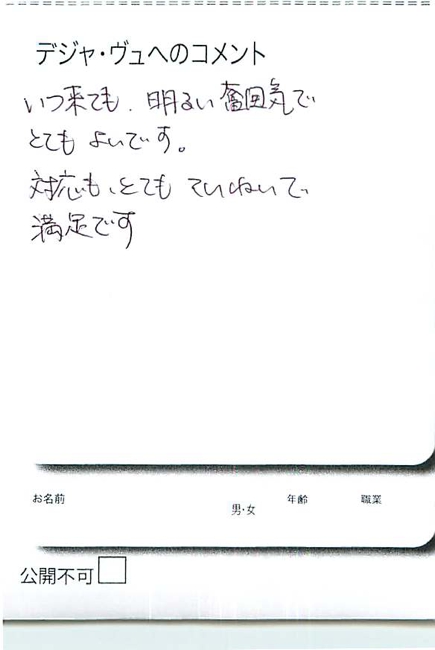 デジャ・ヴュへのコメント
いつ来ても、明るい奮囲気で
とても よいです。
対応も、とても ていねいで
満足です
お名前
男・女
年齢
職業
公開不可